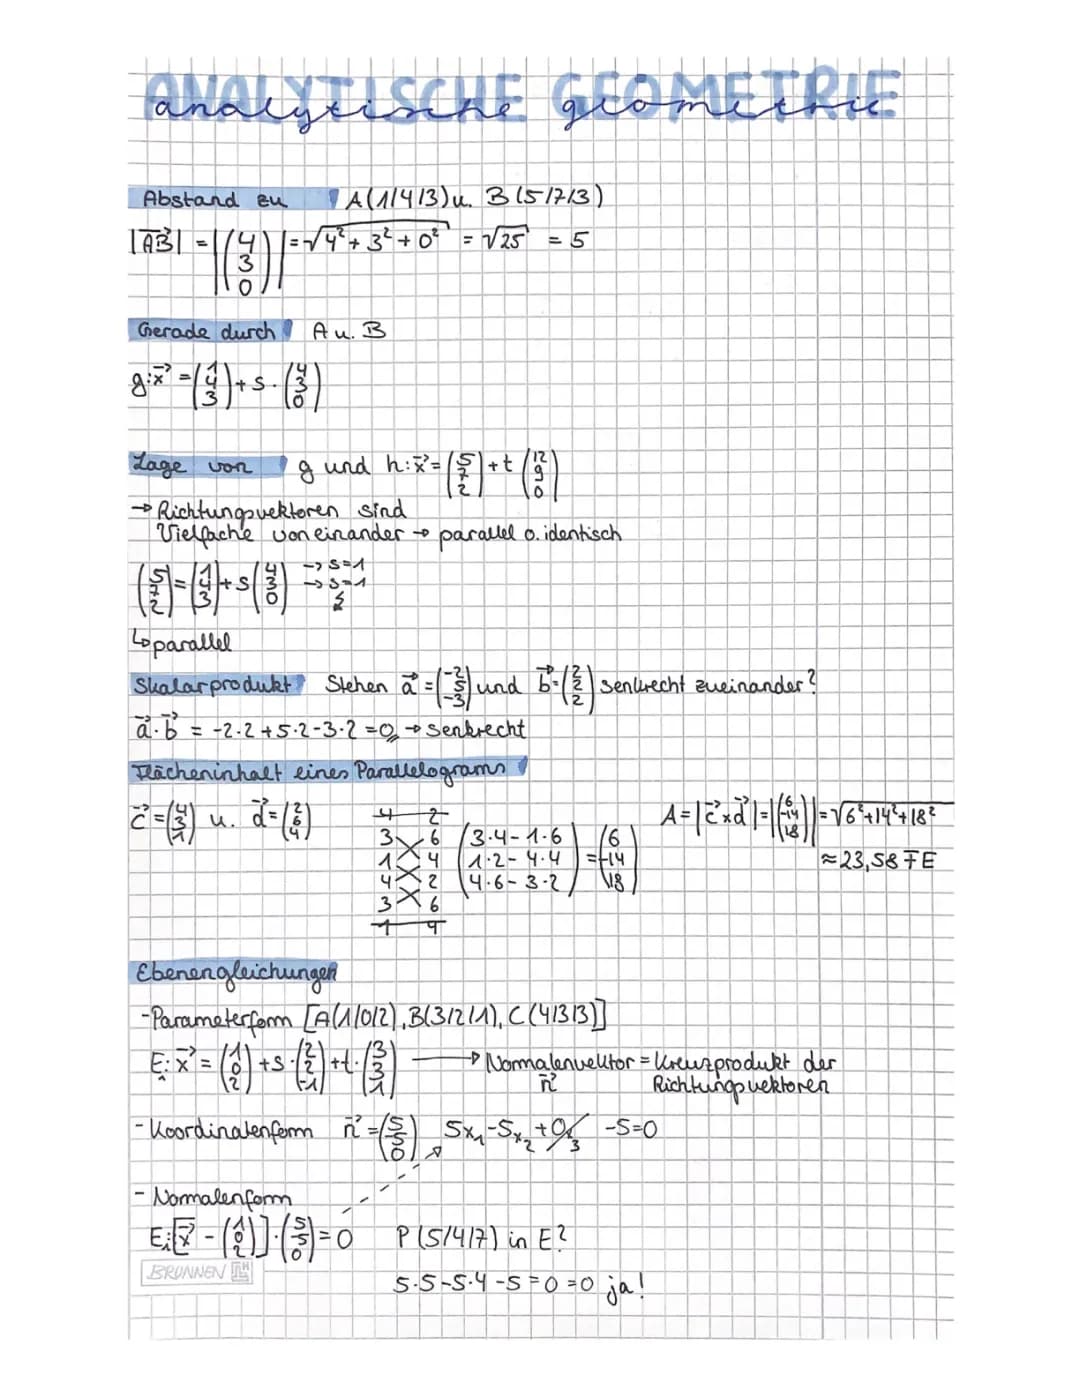 ANALYTISCHE GEOMETRIE
analytische geometrie
Abstand zu A(1/4/3) u. B(5/7/3)
|AB⃗| = |(4 3 0)| = √(4² + 3² + 0²) = √25 = 5
Gerade durch A u. B
g: x⃗ = (1 4 3) + s · (4 3 0)
Lage von g und h: x⃗ = (5 7 2) + t (12 9 0)
→ Richtungsvektoren sind
Vielfache voneinander → parallel o. identisch
(5 7 2) = (1 4 3) + s (4 3 0) → s=1 → s=1 ↯
↳ parallel
Skalarprodukt Stehen a⃗ = (-2 5 -3) und b⃗ = (2 2 2) senkrecht zueinander?
a⃗ · b⃗ = -2·2 + 5·2 - 3·2 = 0 → senkrecht
Flächeninhalt eines Parallelograms
c⃗ = (4 3 1) u. d⃗ = (2 6 4)
4 2
3 6
1 4
4 2
3 6
1 4
(3·4 - 1·6 1·2 - 4·4 4·6 - 3·2) = (6 -14 18)
A = |c⃗ x d⃗| = |(6 -14 18)| = √(6² + 14² + 18²)
≈ 23,58 FE
Ebenengleichungen
- Parameterform [A(1/0/2), B(3/2/1), C(4/3/3)]
E: x⃗ = (1 0 2) + s · (2 2 -1) + t · (3 3 1) → Normalenvektor = Kreuzprodukt der
n⃗ Richtungsvektoren
- Koordinatenform n⃗ = (5 -5 0) 5x₁ - 5x₂ + 0x₃ - 5 = 0
- Normalenform
E: [x⃗ - (1 0 2)] · (5 -5 0) = 0 P(5/4/7) in E?
BRUNNEN
5·5 - 5·4 - 5 = 0 = 0 ja!